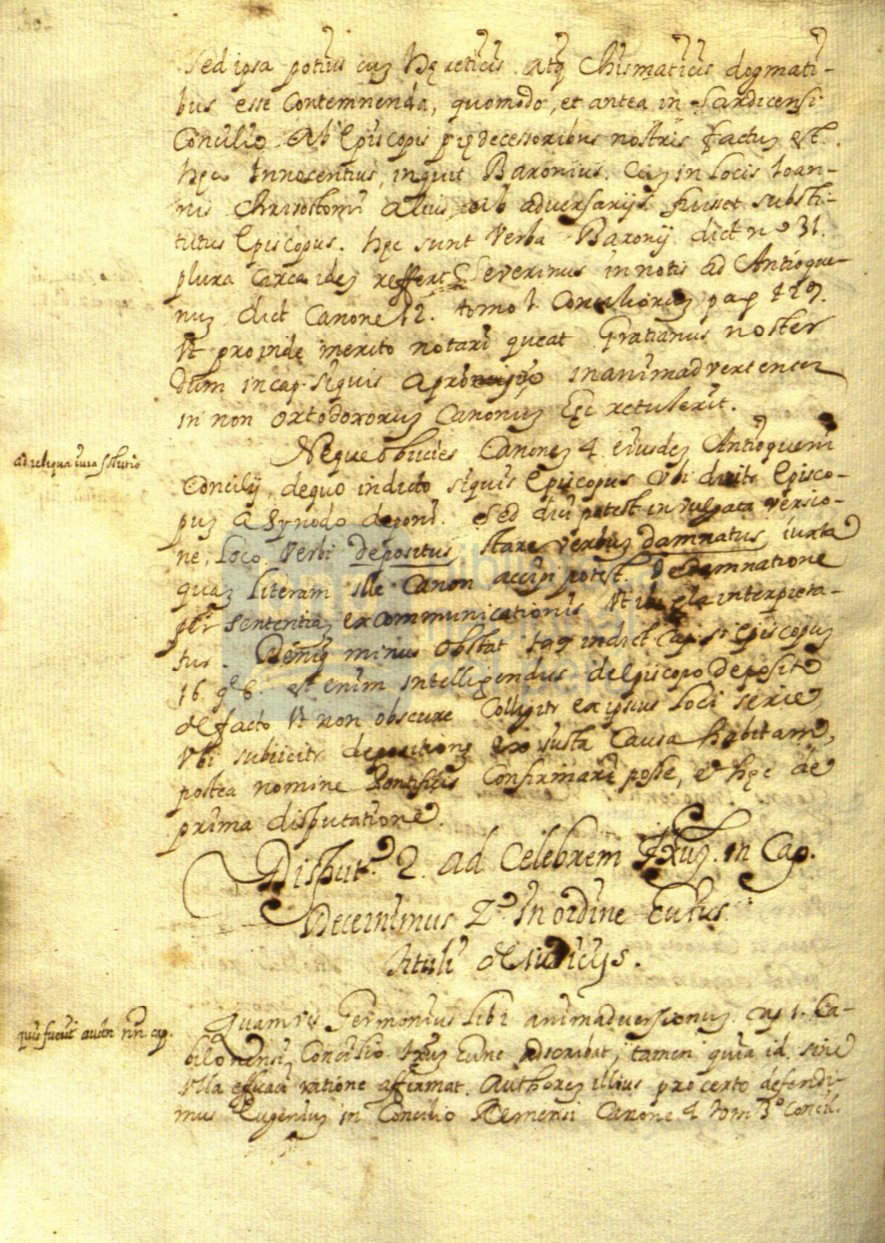 sed ipsa potius cuʒ hęreticis atq chismaticis dogmati-
bus esse contemnenda, quomodo, et antea in Sardicensi
Concilio Ab Episcopis prędecessoribus nostris factuʒ est.
hęc Innocentius, inquit Baronius. Cuʒ in locis Ioan-
nis Chrisostomi alius ab adversarijs fuisset substi-
tutus Episcopus. hęc sunt verba Baronij dict nº 31.
plura Circa ideʒ reffert Severinus in notis ad Antioque-
nuʒ dict Canone 12. tomo 1. Conciliorum pag 429.
Vt proinde merito notari queat Gratianus noster
dum in cap. siquis a proprijo inanimadvertenter
in non ortodoxoruʒ Canonuʒ retulerit.
ad reliqua iura solutio
Neque obiicies Canoneʒ 4. eiusdeʒ Antioqueni
Concilij, de quo in dicto siquis Episcopus vbi dicit Episco-
puʒ a Synodo deponi. Sed dici potest in vulgata versio-
ne, loco Verbi depositus, stare verbuʒ damnatus, iuxta
quaʒ literam ille Canon accipi potest. De damnatione
per sententiaʒ excommunicationis Vt ibi gla interpreta-
tur. Deniq minus obstat in dict. Cap. si Episcopus
16 q. 6. est enim intelligendus de Episcopo deposito
de facto Vt non obscure Colligitr ex ipsius loci serie,
Vbi subiicitr depositioneʒ ex iusta Causa habitam,
postea nomine Pontificis Confirmari posse, et hęc de
prima disputatione.
Disput.ª 2. ad Celebrem textuʒ. in Cap.
Decernimus 2.º in ordine huius
tituli de Iudicijs.
quis fuerit author nri. cap.
Quamvis Germonius lib 1 animadversionuʒ cap 1. Ca-
bilonensi Concilio textuʒ hunc adscribat, tamen quia id sine
vlla efficaci ratione affirmat. Authoreʒ illius pro certo defendi-
mus Eugeniuʒ in Concilio Remensi Canone 4 tom 3º Concil.